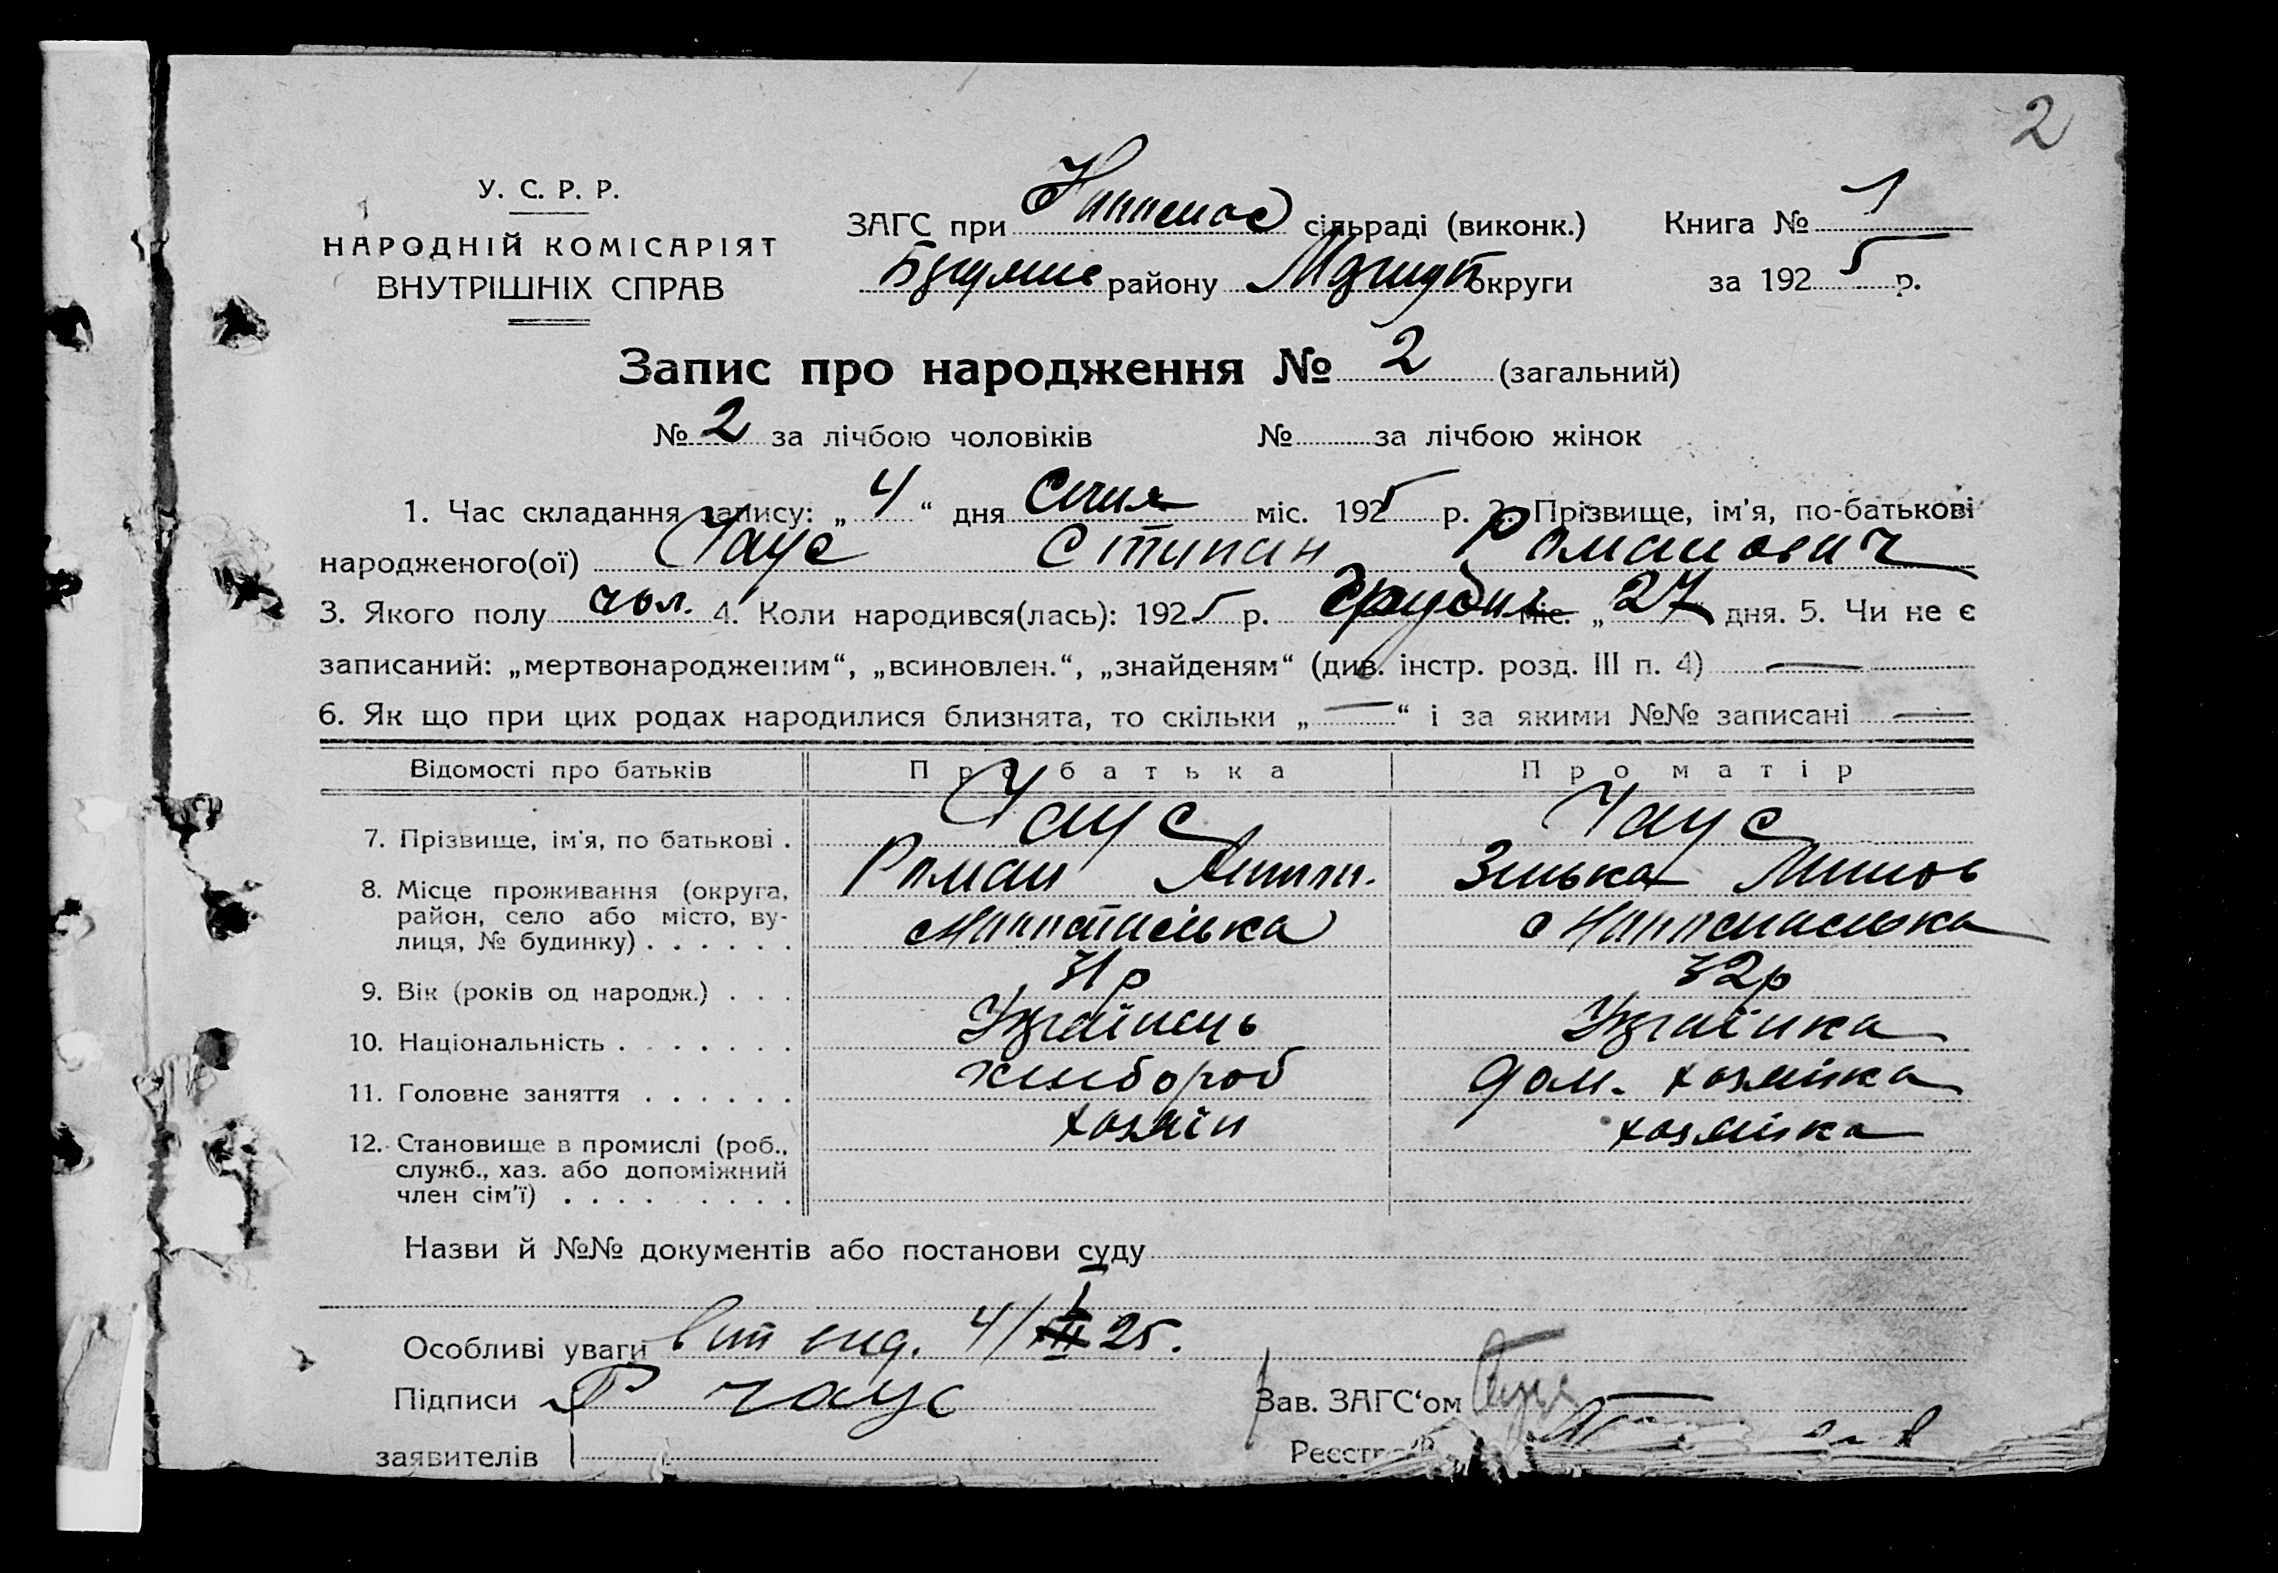 2
У. С. Р. Р.
НАРОДНІЙ КОМІСАРІЯТ
ВНУТРІШНІХ СПРАВ
ЗАГС при сільраді (виконк.)
району округи
Книга № 1
за 1925 р.
Запис про народження № 2 (загальний)
№ 2 за лічбою чоловіків № за лічбою жінок
1. Час складання запису: „4“ дня Січня міс. 1925 р. 2. Прізвище, ім'я, по-батькові
народженого(ої) Чаус Степан Романович
3. Якого полу чол. 4. Коли народився(лась): 1925 р. Грудня міс. „27 дня. 5. Чи не є
записаний: „мертвонародженим“, „всиновлен.“, „знайденям“ (див. інстр. розд. III п. 4) —
6. Як що при цих родах народилися близнята, то скільки „—“ і за якими №№ записані —
Відомості про батьків Про батька Про матір
7. Прізвище, ім'я, по батькові . Чаус Чаус
Роман Зінька
8. Місце проживання (округа,
район, село або місто, ву-
лиця, № будинку) . . . . . .
9. Вік (років од народж.) . . . 31 р 32 р
10. Національність . . . . . . . Українець Українка
11. Головне заняття . . . . . . хлібороб дом. хозяйка
12. Становище в промислі (роб., хозяін хозяйка
служб., хаз. або допоміжний
член сім'ї) . . . . . . . . .
Назви й №№ документів або постанови суду
Особливі уваги 4/I 25.
Підписи Р Чаус Зав. ЗАГС‘ом
заявителів Реєстр